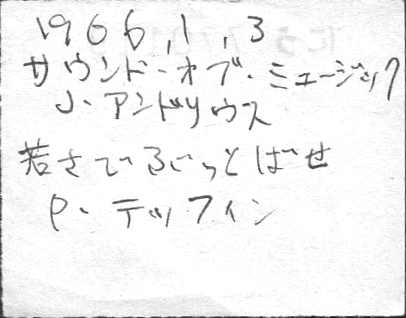 1966,1,3
サウンド・オブ・ミュージック
J・アンドリウス
若さでぶっとばせ
P・デッフィン